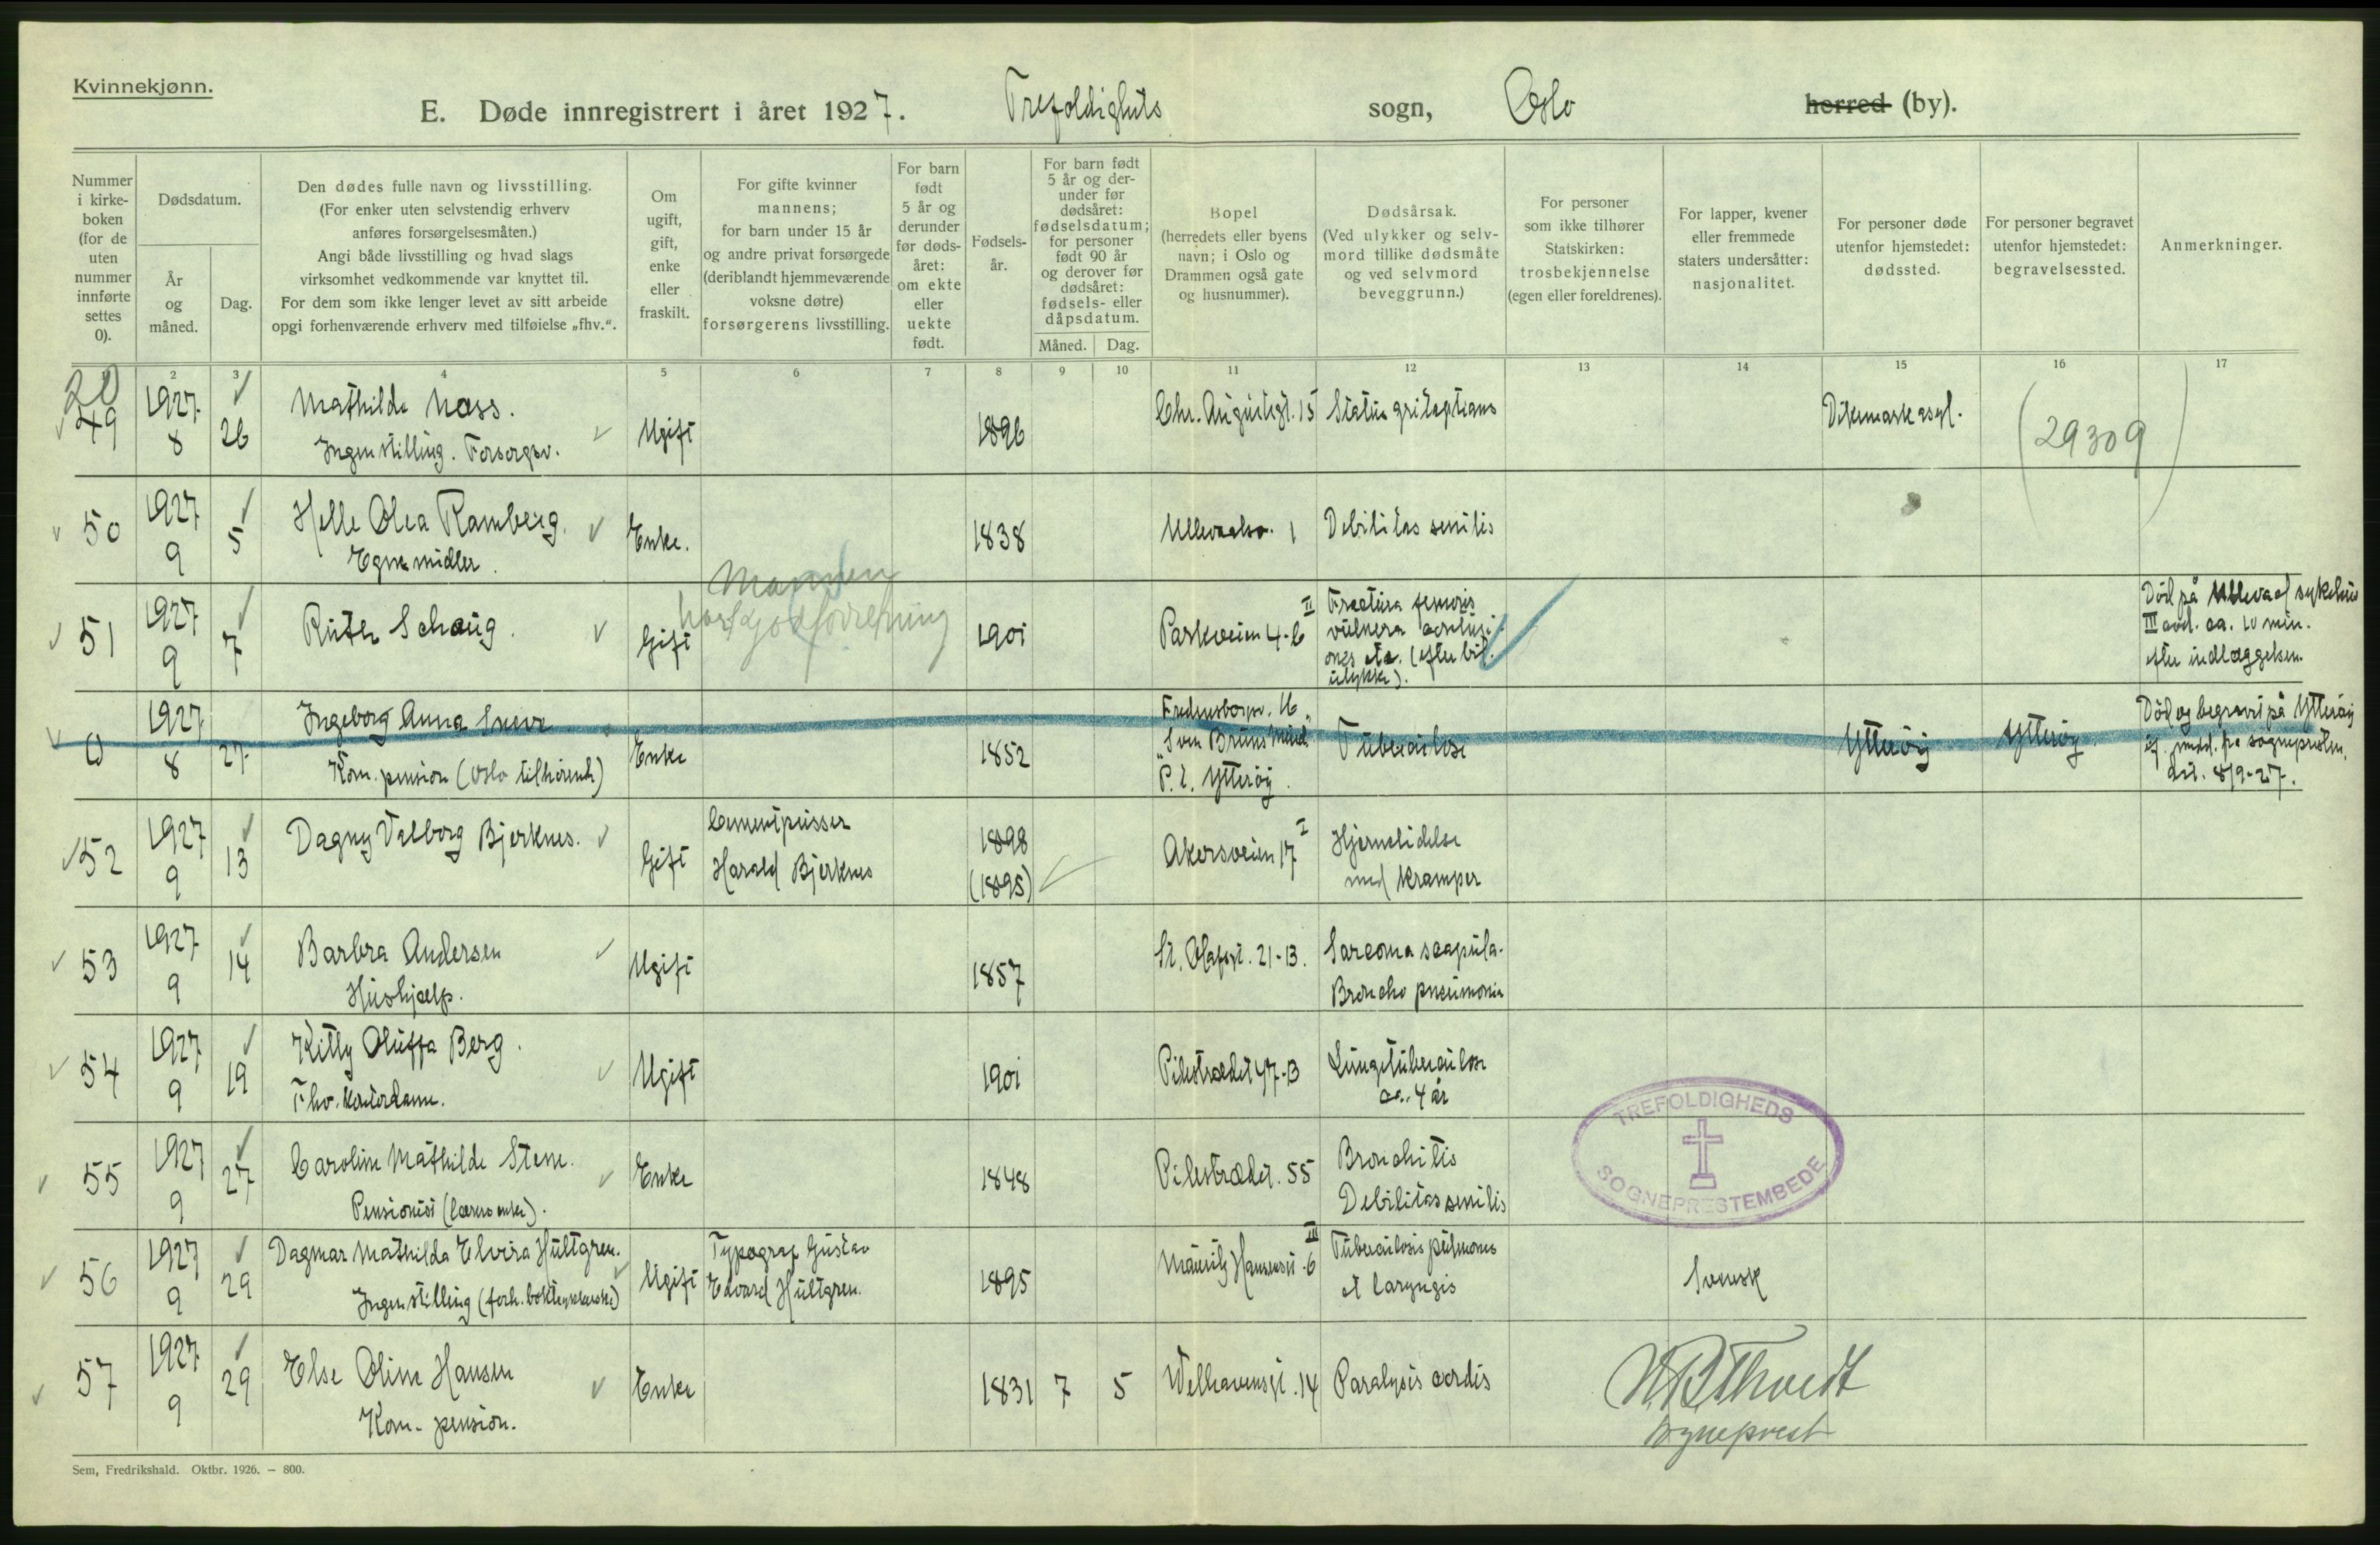 Kvinnekjønn.
E. Døde innregistrert i året 1927. Trefoldighets sogn, Oslo herred (by).
Nummer i kirke- boken (for de uten nummer innførte settes 0).
Dødsdatum.
År og måned.
Dag.
Den dødes fulle navn og livsstilling.
(For enker uten selvstendig erhverv
anføres forsørgelsesmåten.)
Angi både livsstilling og hvad slags
virksomhet vedkommende var knyttet til.
For dem som ikke lenger levet av sitt arbeide
opgi forhenværende erhverv med tilføielse „fhv.“.
Om ugift, gift, enke eller fraskilt.
For gifte kvinner
mannens;
for barn under 15 år
og andre privat forsørgede
(deriblandt hjemmeværende
voksne døtre)
forsørgerens livsstilling.
For barn født 5 år og derunder før døds- året: om ekte eller uekte født.
Fødsels- år.
For barn født
5 år og der-
under før
dødsåret:
fødselsdatum;
for personer
født 90 år
og derover før
dødsåret:
fødsels- eller
dåpsdatum.
Måned. Dag.
Bopel
(herredets eller byens
navn; i Oslo og
Drammen også gate
og husnummer).
Dødsårsak.
(Ved ulykker og selv-
mord tillike dødsmåte
og ved selvmord
beveggrunn.)
For personer
som ikke tilhører
Statskirken:
trosbekjennelse
(egen eller foreldrenes).
For lapper, kvener
eller fremmede
staters undersåtter:
nasjonalitet.
For personer døde
utenfor hjemstedet:
dødssted.
For personer begravet
utenfor hjemstedet:
begravelsessted.
Anmerkninger.
1 2 3 4 5 6 7 8 9 10 11 12 13 14 15 16 17
20
49 1927 8 26 Mathilde Moss. Ugift 1896 Chr. Augustsgt. 15 Dikemark asyl. (29309)
Ingen stilling. Forsørges.
50 1927 9 5 Helle Olea Ramberg. Enke. 1838 Ullevaalsv. 1 Debilitas senilis
Egne midler.
51 1927 9 7 Ruth Schaug. Gift 1901 Parkveien 4-b II
Manden
har
Fractura femoris
vulnera
etc. (efter bil-
ulykke).
Død på Ullevaal sykehus
III avd. ca. 10 min.
efter indlæggelsen.
0 1927 8 27 Ingeborg Anna Enke 1852 Tuberculose Ytterøy Ytterøy.
Kom. pension (Oslo tilhørende)
Fredensborgv. 16
P. t. Ytterøy.
Død og begravet på Ytterøy
if. medd. fra sognepresten,
dat. 8/9-27.
52 1927 9 13 Dagny Valborg Bjerknes. Gift Cementpusser
Harald Bjerknes
1898
(1895)
Akersveien 17 I
Hjernelidelse
med kramper
53 1927 9 14 Barbra Andersen Ugift 1857 St. Olafsgt. 21-B. Sarcoma scapula.
Hushjælp. Broncho pneumonia
54 1927 9 19 Kitty Oluffa Berg. Ugift 1901 Pilestrædet 47-B Lungetuberculose
Fhv. kontordame. ca. 4 år
55 1927 9 27 Caroline Mathilde Stene. Enke 1848 Pilestrædet. 55 Bronchitis
Pensionist (lærers enke). Debilitas senilis
56 1927 9 29 Dagmar Mathilda Elvira Hultgren. Ugift Typograf Gustav
Ingen stilling
Edvard Hultgren.
1895 Mauritz Hansensgt. 6 III
Tuberculosis pulmones
et laryngis
Svensk
57 1927 9 29 Else Oline Hansen Enke 1831 7 5 Welhavensgt. 14 Paralysis cordis
Kom. pension.
TREFOLDIGHEDS
SOGNEPRESTEMBEDE
sogneprest
Sem, Fredrikshald. Oktbr. 1926. — 800.